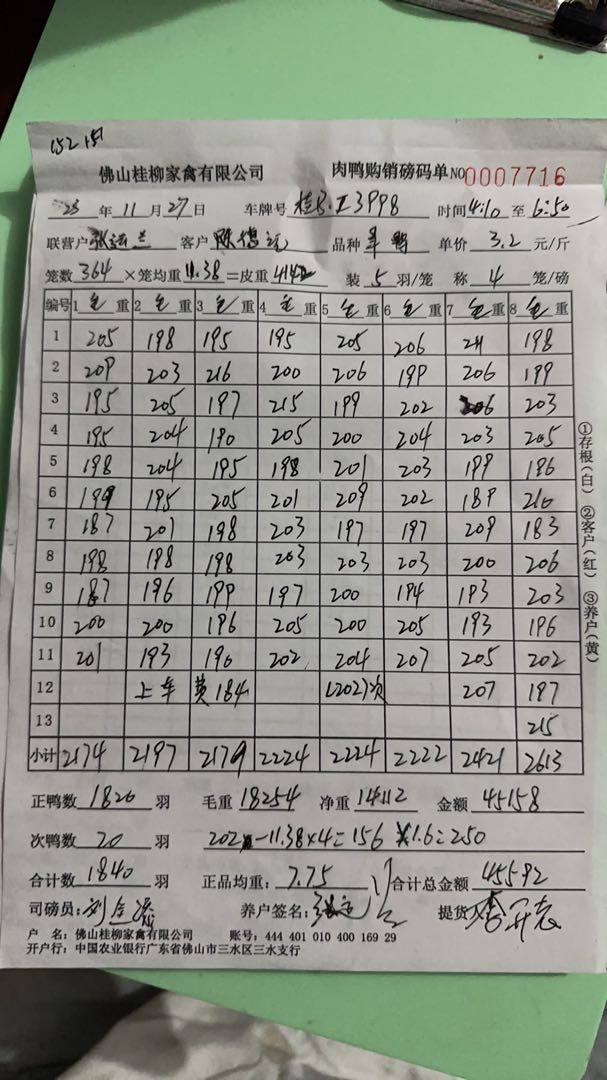 152 151
佛山桂柳家禽有限公司 肉鸭购销磅码单 NO 0007716
23 年 11 月 27 日 车牌号 3998 时间 4:10 至 6:50
联营户 客户 品种 单价 3.2 元/斤
笼数 364 ×笼均重 11.38 =皮重 4142 装 5 羽/笼 称 4 笼/磅
编号 1 毛 重 2 毛 重 3 毛 重 4 毛 重 5 毛 重 6 毛 重 7 毛 重 8 毛 重
1 205 198 195 195 205 206 211 198
2 209 203 216 200 206 199 206 199
3 195 205 197 215 199 202 206 203
4 195 204 190 205 200 204 203 205
5 198 204 195 198 201 203 199 196
6 199 195 205 201 209 202 189 210
7 187 201 198 203 197 197 209 183
8 198 198 198 203 203 203 200 206
9 187 196 199 197 200 194 193 203
10 200 200 196 205 200 205 193 196
11 201 193 190 202 204 207 205 202
12 上车 黄184 (202)次 207 197
13 215
小计 2174 2197 2179 2224 2224 2222 2421 2613
正鸭数 1820 羽 毛重 18254 净重 14112 金额 45158
次鸭数 20 羽 202 -11.38×4=156 ×1.6=250
合计数 1840 羽 正品均重: 7.75 合计总金额 45592
司磅员: 养户签名: 提货
户 名: 佛山桂柳家禽有限公司 账号: 444 401 010 400 169 29
开户行: 中国农业银行广东省佛山市三水区三水支行
①存根(白) ②客户(红) ③养户(黄)